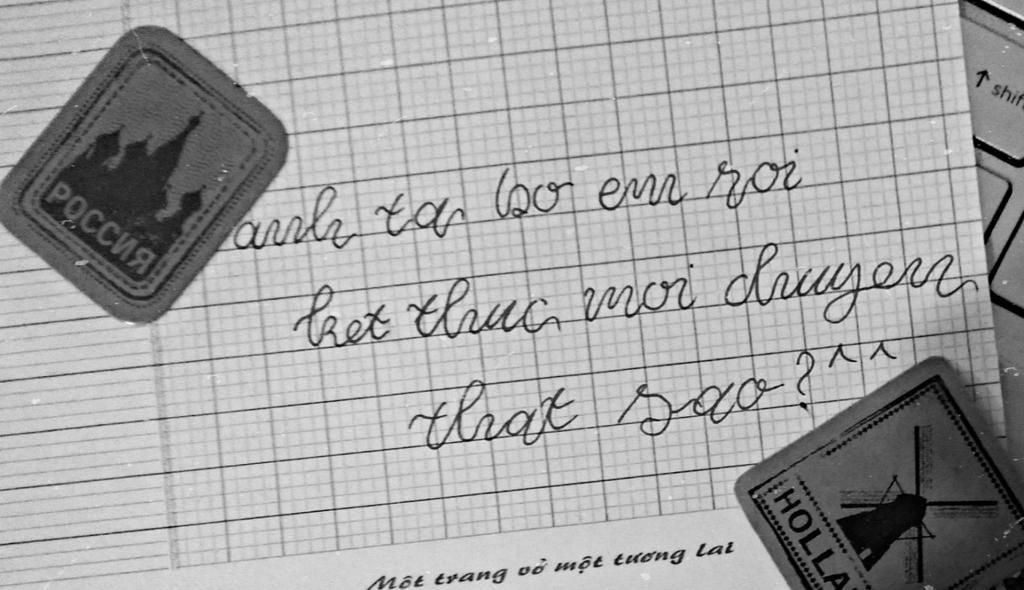 shift
РОССИЯ
anh ta bo em roi
ket thuc moi chuyen
that sao?^^
HOLLA
Một trang vở một tương lai